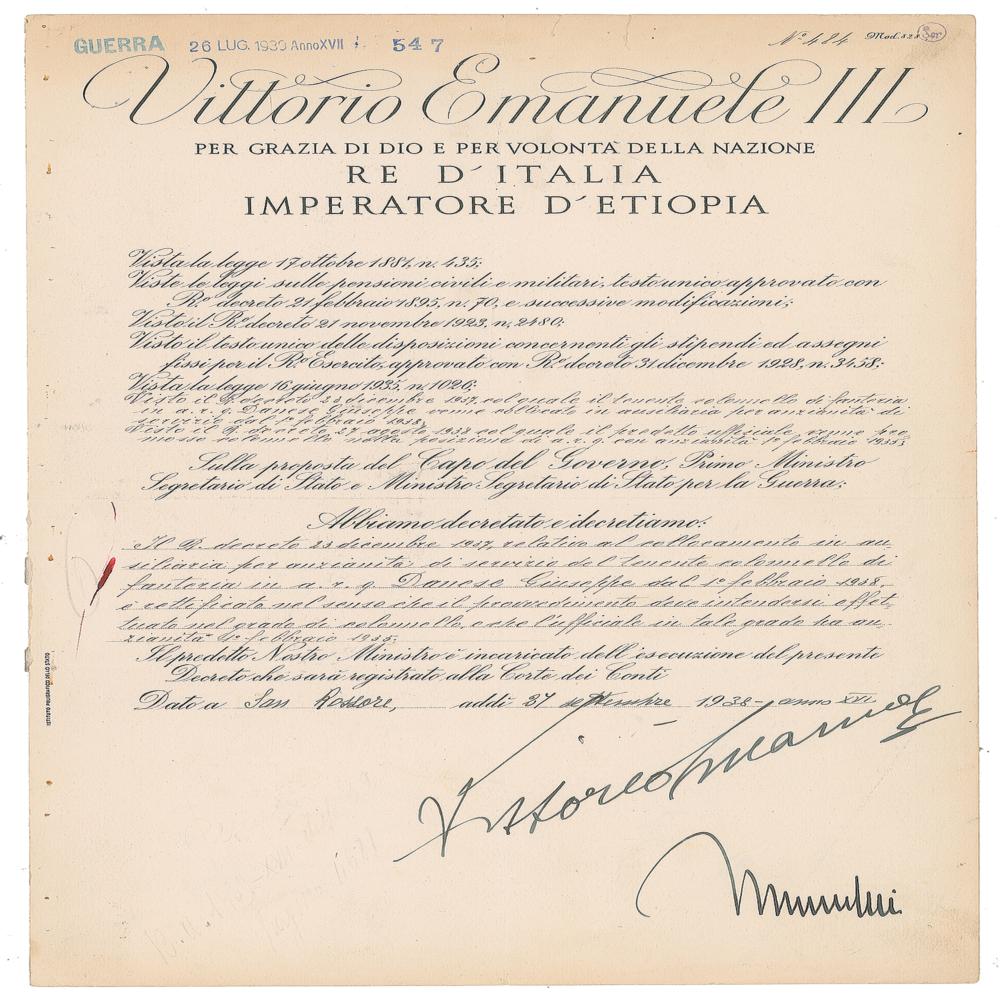 GUERRA 26 LUG. 1939 Anno XVII 547 N° 484 Mod. 828
Vittorio Emanuele III
PER GRAZIA DI DIO E PER VOLONTÀ DELLA NAZIONE
RE D'ITALIA
IMPERATORE D'ETIOPIA
Vista la legge 17 ottobre 1881, n. 435;
Viste le leggi sulle pensioni civili e militari, testo unico approvato con
R.° decreto 21 febbraio 1895, n. 70, e successive modificazioni;
Visto il R.° decreto 21 novembre 1923, n. 2480;
Visto il testo unico delle disposizioni concernenti gli stipendi ed assegni
fissi per il R.° Esercito, approvato con R.° decreto 31 dicembre 1928, n. 3458;
Vista la legge 16 giugno 1935, n. 1026;
Visto il R. decreto 23 dicembre 1937, col quale il tenente colonnello di fanteria
in a. r. q. Danese Giuseppe venne collocato in ausiliaria per anzianità di
servizio dal 1° febbraio 1938;
Visto il R. decreto 27 agosto 1938 col quale il predetto ufficiale venne pro-
mosso colonnello nella posizione di a. r. q. con anzianità 1° febbraio 1935;
Sulla proposta del Capo del Governo, Primo Ministro
Segretario di Stato e Ministro Segretario di Stato per la Guerra;
Abbiamo decretato e decretiamo:
Il R. decreto 23 dicembre 1937, relativo al collocamento in au-
siliaria per anzianità di servizio del tenente colonnello di
fanteria in a. r. q. Danese Giuseppe dal 1° febbraio 1938,
è rettificato nel senso che il provvedimento deve intendersi effet-
tuato nel grado di colonnello, e che l'ufficiale in tale grado ha an-
zianità 1° febbraio 1935.
Il predetto Nostro Ministro è incaricato dell'esecuzione del presente
Decreto che sarà registrato alla Corte dei Conti
Dato a San Rossore, addì 27 settembre 1938 - anno XVI
Vittorio Emanuele
Mussolini
ISTITUTO POLIGRAFICO DELLO STATO